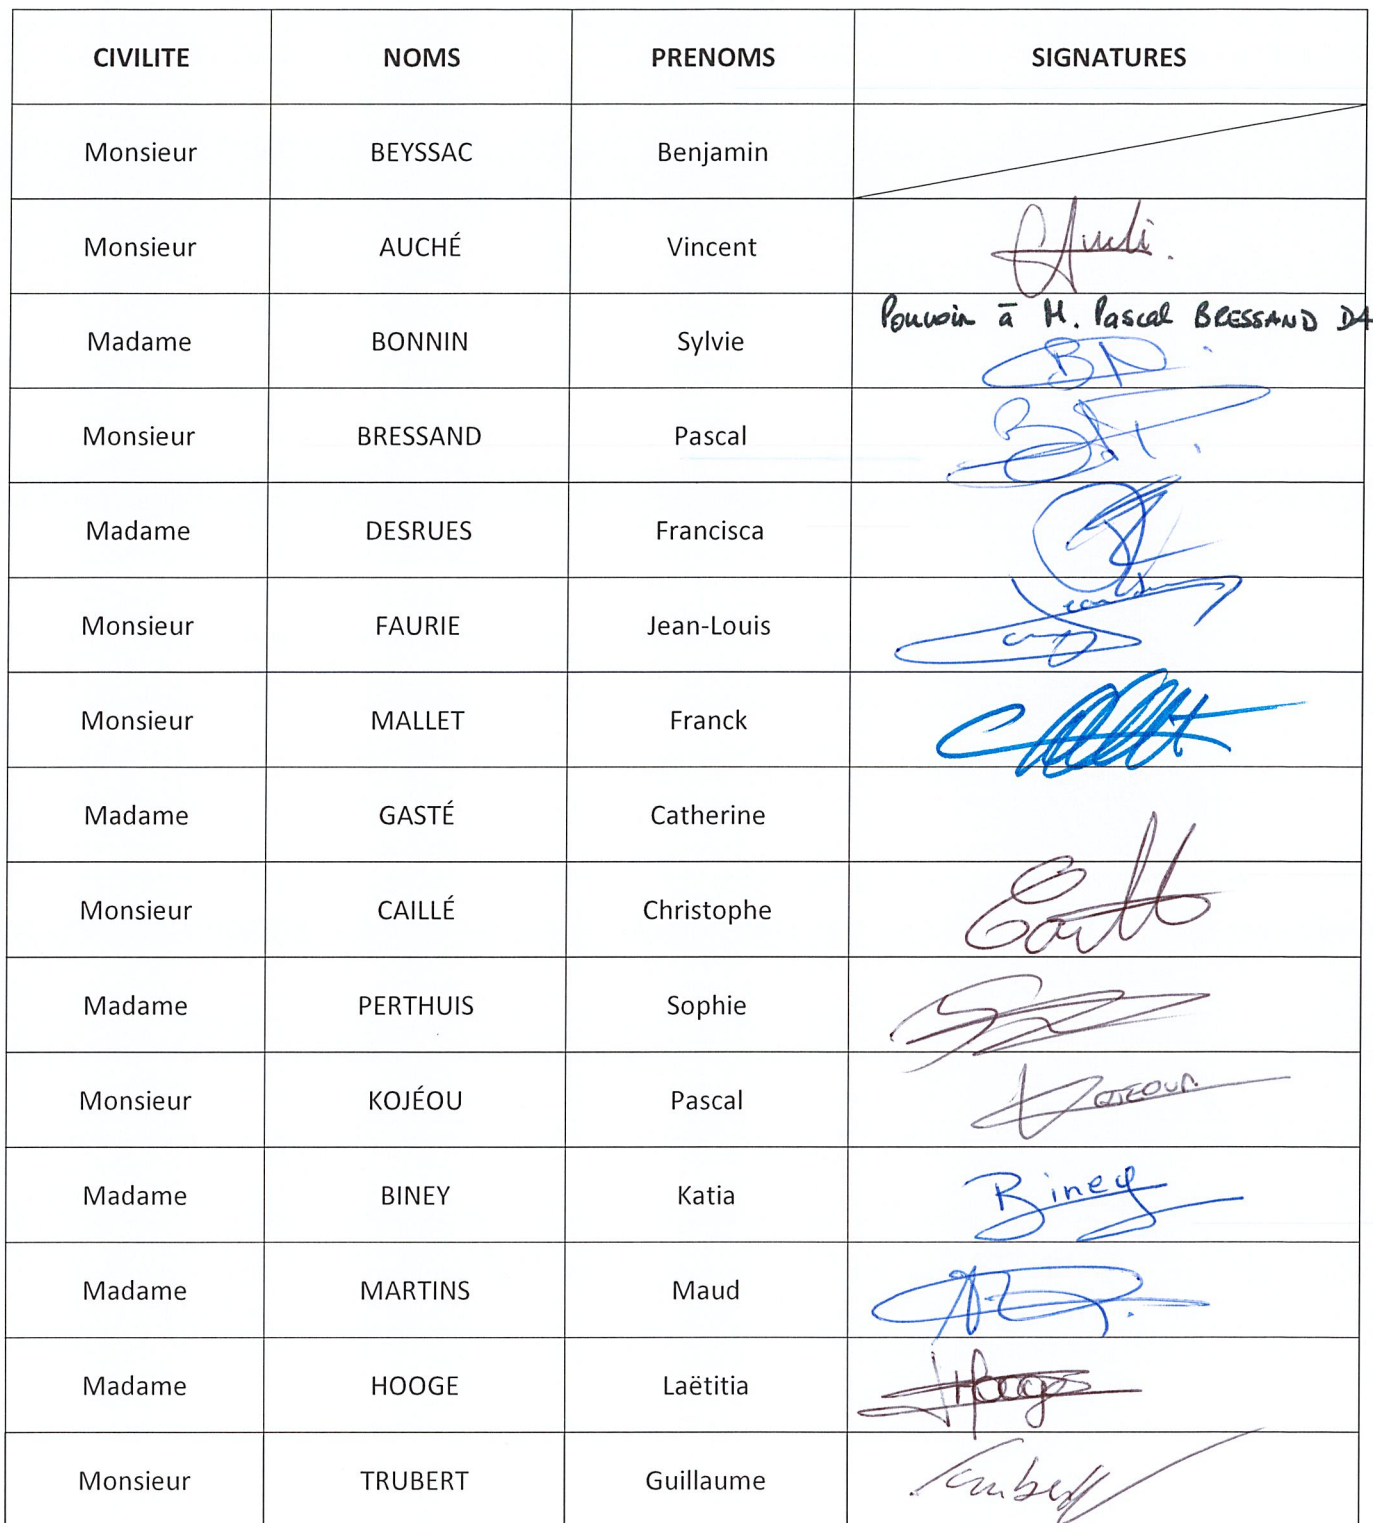 CIVILITE NOMS PRENOMS SIGNATURES
Monsieur BEYSSAC Benjamin
Monsieur AUCHÉ Vincent
Pouvoir à M. Pascal BRESSAND
Madame BONNIN Sylvie
Monsieur BRESSAND Pascal
Madame DESRUES Francisca
Monsieur FAURIE Jean-Louis
Monsieur MALLET Franck
Madame GASTÉ Catherine
Monsieur CAILLÉ Christophe
Madame PERTHUIS Sophie
Monsieur KOJÉOU Pascal
Madame BINEY Katia Biney
Madame MARTINS Maud
Madame HOOGE Laëtitia Hooge
Monsieur TRUBERT Guillaume